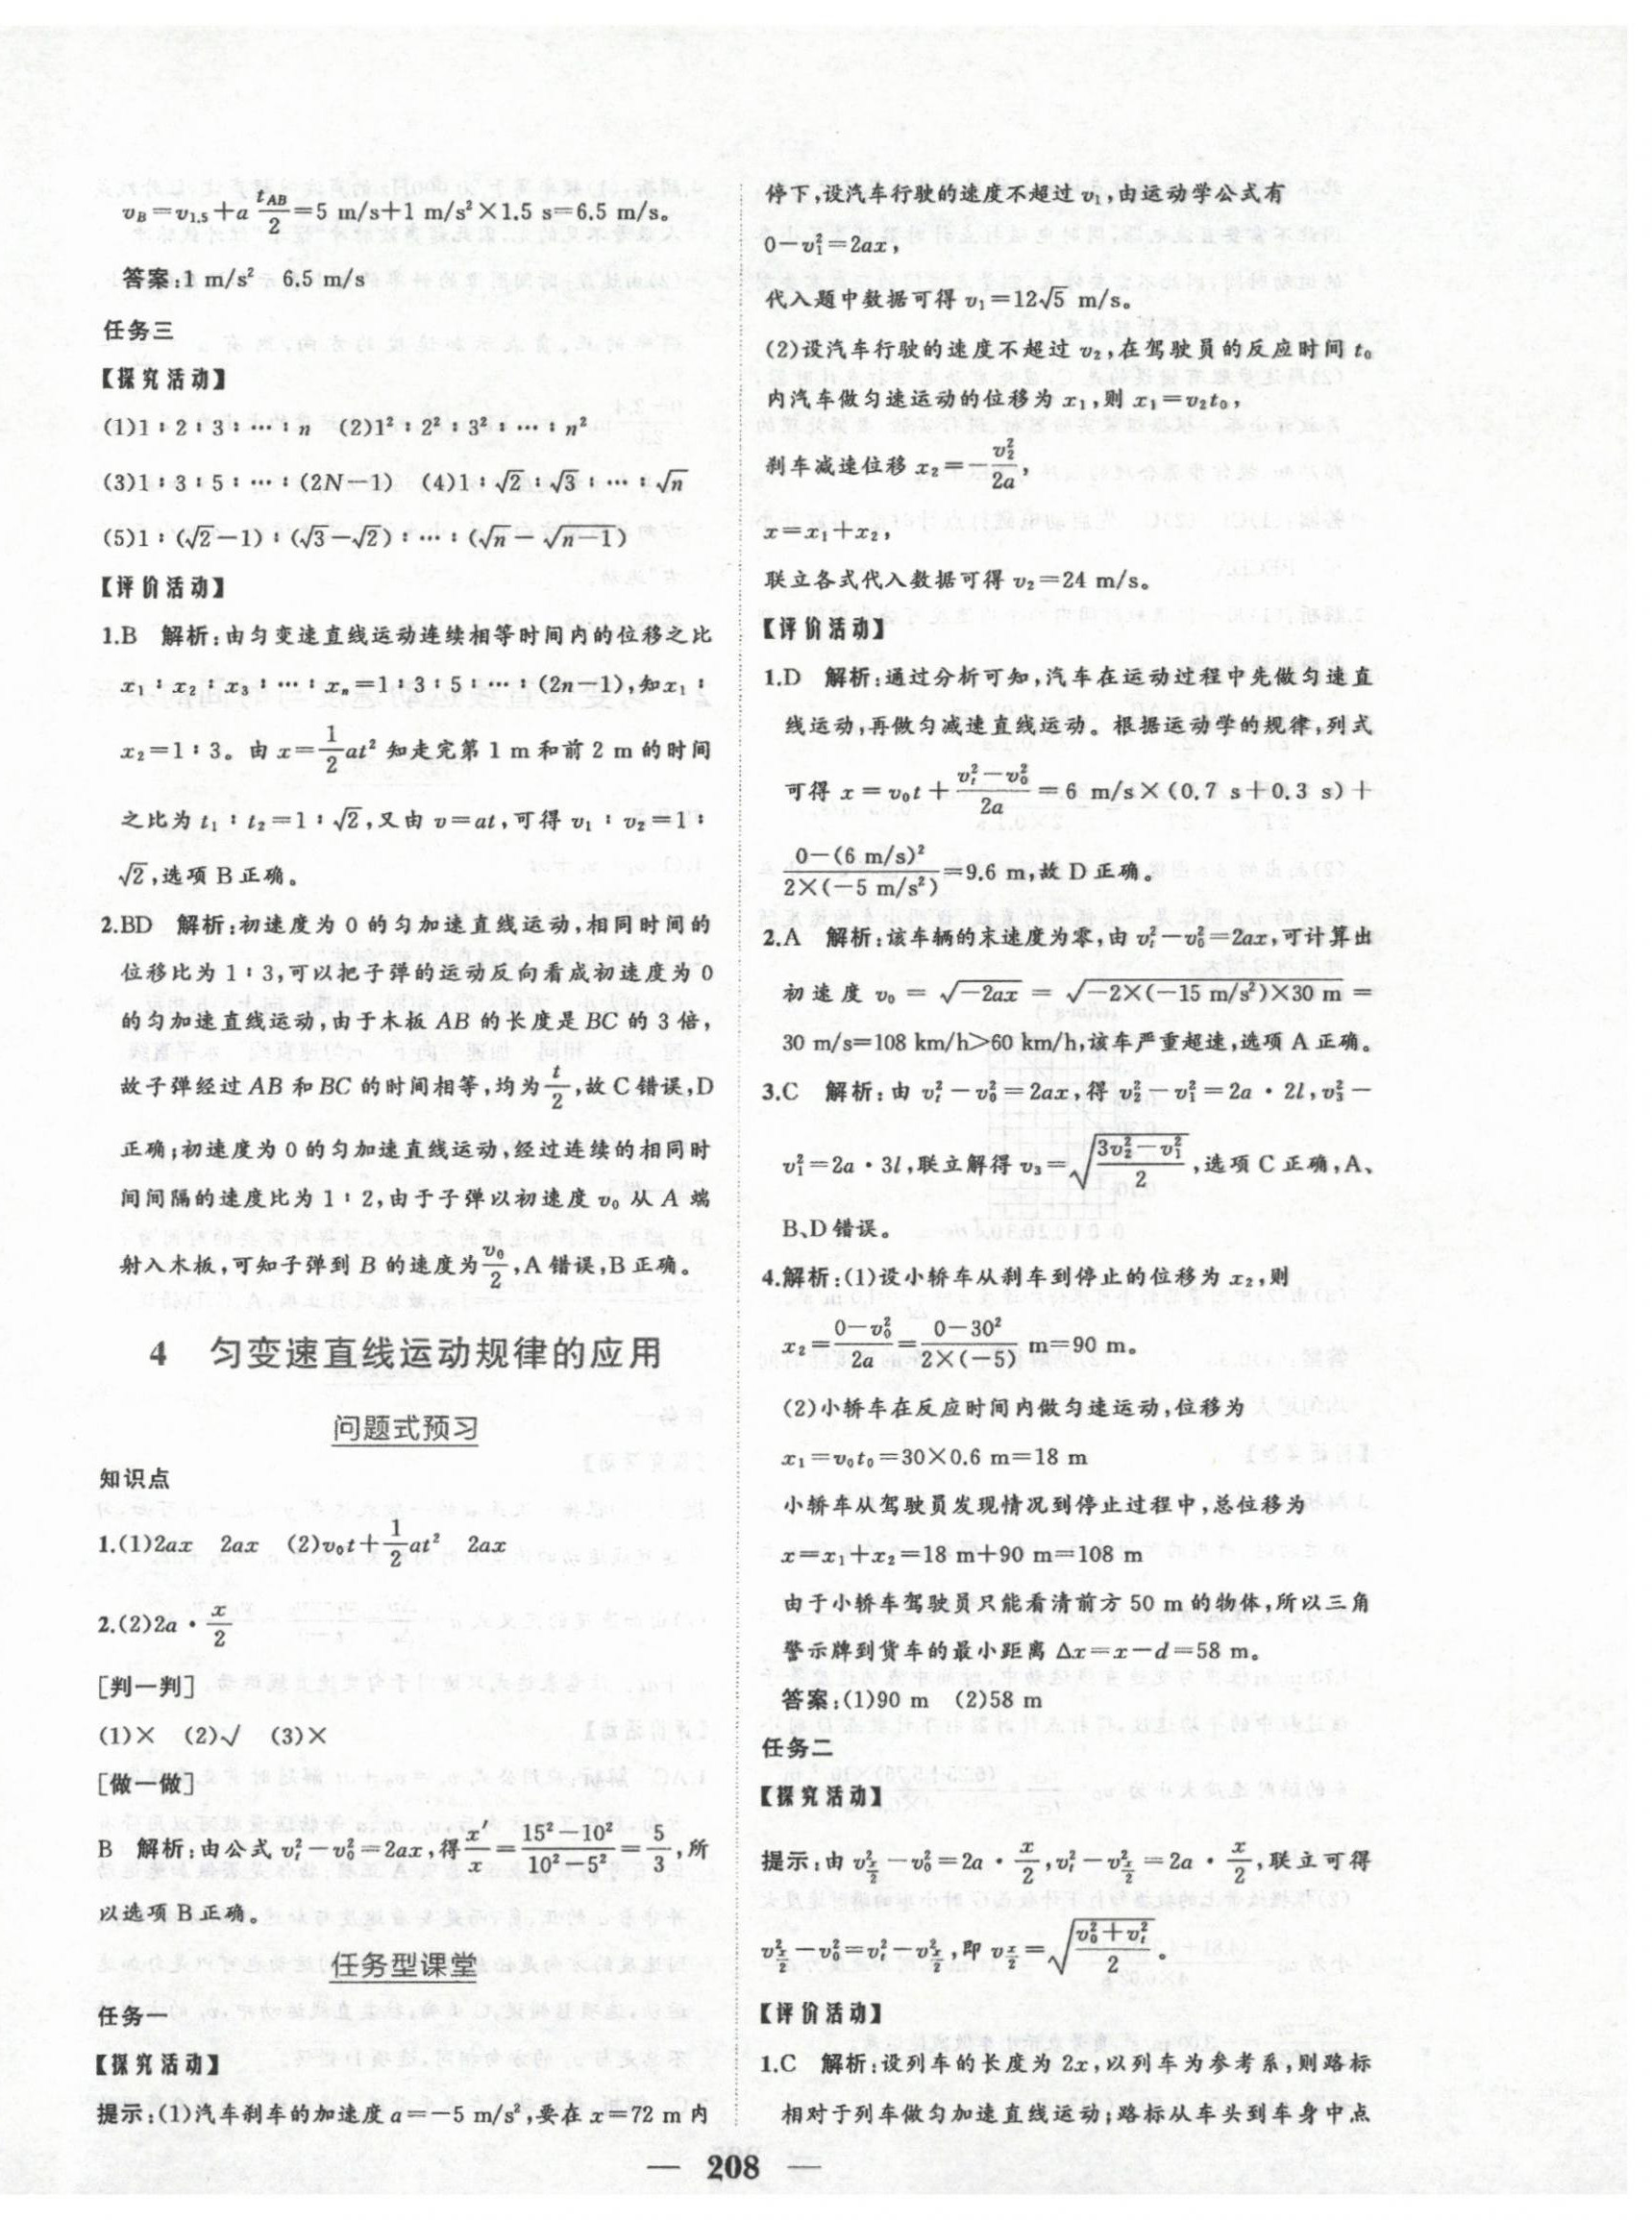 v_B=v_{1.5}+a\frac{t_{AB}}{2}=5 m/s+1 m/s²×1.5 s=6.5 m/s。
答案:1 m/s² 6.5 m/s
任务三
【探究活动】
(1)1∶2∶3∶…∶n (2)1²∶2²∶3²∶…∶n²
(3)1∶3∶5∶…∶(2N-1) (4)1∶√2∶√3∶…∶√n
(5)1∶(√2-1)∶(√3-√2)∶…∶(√n-√(n-1))
【评价活动】
1.B 解析:由匀变速直线运动连续相等时间内的位移之比
x₁∶x₂∶x₃∶…∶xₙ=1∶3∶5∶…∶(2n-1),知x₁∶
x₂=1∶3。由x=\frac{1}{2}at²知走完第1 m和前2 m的时间
之比为t₁∶t₂=1∶√2,又由v=at,可得v₁∶v₂=1∶
√2,选项B正确。
2.BD 解析:初速度为0的匀加速直线运动,相同时间的
位移比为1∶3,可以把子弹的运动反向看成初速度为0
的匀加速直线运动,由于木板AB的长度是BC的3倍,
故子弹经过AB和BC的时间相等,均为\frac{t}{2},故C错误,D
正确;初速度为0的匀加速直线运动,经过连续的相同时
间间隔的速度比为1∶2,由于子弹以初速度v₀从A端
射入木板,可知子弹到B的速度为\frac{v₀}{2},A错误,B正确。
4 匀变速直线运动规律的应用
问题式预习
知识点
1.(1)2ax 2ax (2)v₀t+\frac{1}{2}at² 2ax
2.(2)2a·\frac{x}{2}
[判一判]
(1)× (2)√ (3)×
[做一做]
B 解析:由公式v_t²-v₀²=2ax,得\frac{x'}{x}=\frac{15²-10²}{10²-5²}=\frac{5}{3},所
以选项B正确。
任务型课堂
任务一
【探究活动】
提示:(1)汽车刹车的加速度a=-5 m/s²,要在x=72 m内
停下,设汽车行驶的速度不超过v₁,由运动学公式有
0-v₁²=2ax,
代入题中数据可得v₁=12√5 m/s。
(2)设汽车行驶的速度不超过v₂,在驾驶员的反应时间t₀
内汽车做匀速运动的位移为x₁,则x₁=v₂t₀,
刹车减速位移x₂=-\frac{v₂²}{2a},
x=x₁+x₂,
联立各式代入数据可得v₂=24 m/s。
【评价活动】
1.D 解析:通过分析可知,汽车在运动过程中先做匀速直
线运动,再做匀减速直线运动。根据运动学的规律,列式
可得x=v₀t+\frac{v_t²-v₀²}{2a}=6 m/s×(0.7 s+0.3 s)+
\frac{0-(6 m/s)²}{2×(-5 m/s²)}=9.6 m,故D正确。
2.A 解析:该车辆的末速度为零,由v_t²-v₀²=2ax,可计算出
初速度v₀=√(-2ax)=√(-2×(-15 m/s²)×30 m)=
30 m/s=108 km/h>60 km/h,该车严重超速,选项A正确。
3.C 解析:由v_t²-v₀²=2ax,得v₂²-v₁²=2a·2l,v₃²-
v₁²=2a·3l,联立解得v₃=√(\frac{3v₂²-v₁²}{2}),选项C正确,A、
B、D错误。
4.解析:(1)设小轿车从刹车到停止的位移为x₂,则
x₂=\frac{0-v₀²}{2a}=\frac{0-30²}{2×(-5)} m=90 m。
(2)小轿车在反应时间内做匀速运动,位移为
x₁=v₀t₀=30×0.6 m=18 m
小轿车从驾驶员发现情况到停止过程中,总位移为
x=x₁+x₂=18 m+90 m=108 m
由于小轿车驾驶员只能看清前方50 m的物体,所以三角
警示牌到货车的最小距离Δx=x-d=58 m。
答案:(1)90 m (2)58 m
任务二
【探究活动】
提示:由v_{\frac{x}{2}}²-v₀²=2a·\frac{x}{2},v_t²-v_{\frac{x}{2}}²=2a·\frac{x}{2},联立可得
v_{\frac{x}{2}}²-v₀²=v_t²-v_{\frac{x}{2}}²,即v_{\frac{x}{2}}=√(\frac{v₀²+v_t²}{2})。
【评价活动】
1.C 解析:设列车的长度为2x,以列车为参考系,则路标
相对于列车做匀加速直线运动;路标从车头到车身中点
— 208 —